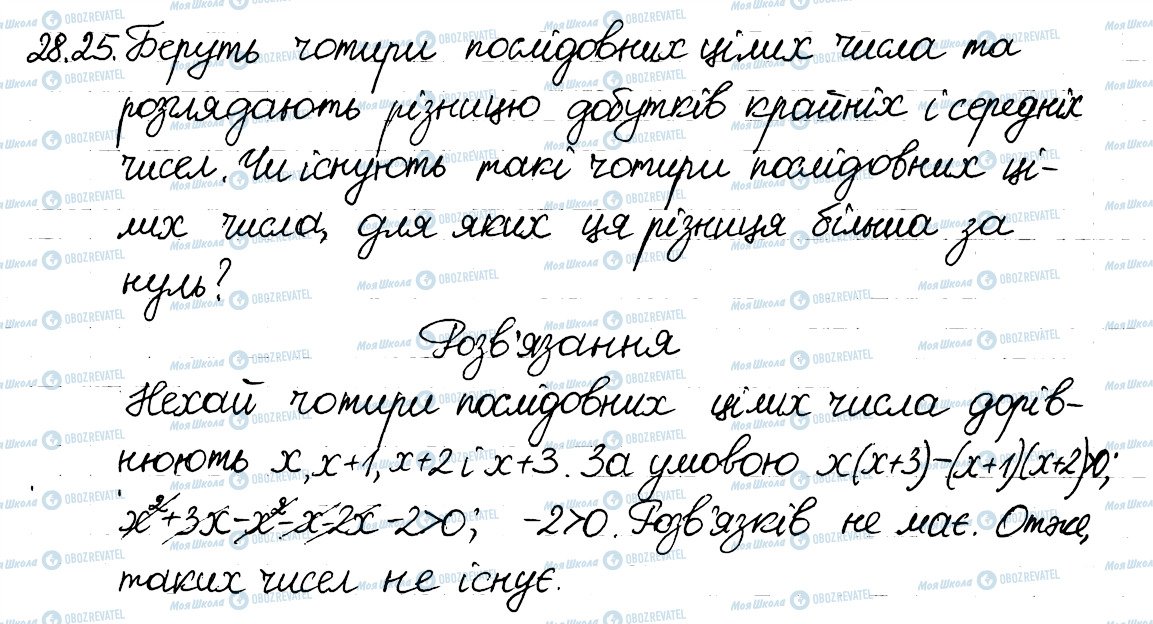 28.25. Беруть чотири послідовних цілих числа та
розглядають різницю добутків крайніх і середніх
чисел. Чи існують такі чотири послідовних ці-
лих числа, для яких ця різниця більша за
нуль?
Розв'язання
Нехай чотири послідовних цілих числа дорів-
нюють x, x+1, x+2 і x+3. За умовою x(x+3)-(x+1)(x+2)>0;
x²+3x-x²-x-2x-2>0; -2>0. Розв'язків не має. Отже,
таких чисел не існує.